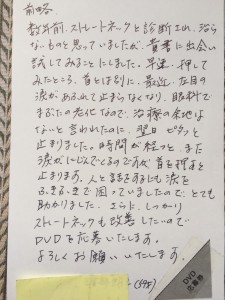 前略
数年前、ストレートネックと診断され、治ら
ないものと思っていましたが、貴書に出会い
試してみることにしました。早速、押して
みたところ、首とは別に、最近、左目の
涙があふれて止まらなくなり、眼科で
まぶたの老化なので、治療の余地は
ないと言われたのに、翌日ピタッと
止まりました。時間が経つと、また
涙がにじんでくるのですが、首を押すと
止まります。人と話をするにも涙を
ふきふきで困っていましたので、とても
助かりました。さらに、しっかり
ストレートネックも改善したいので
DVDを応募いたします。
よろしくお願いいたします。
(39才)
DVD
応募券